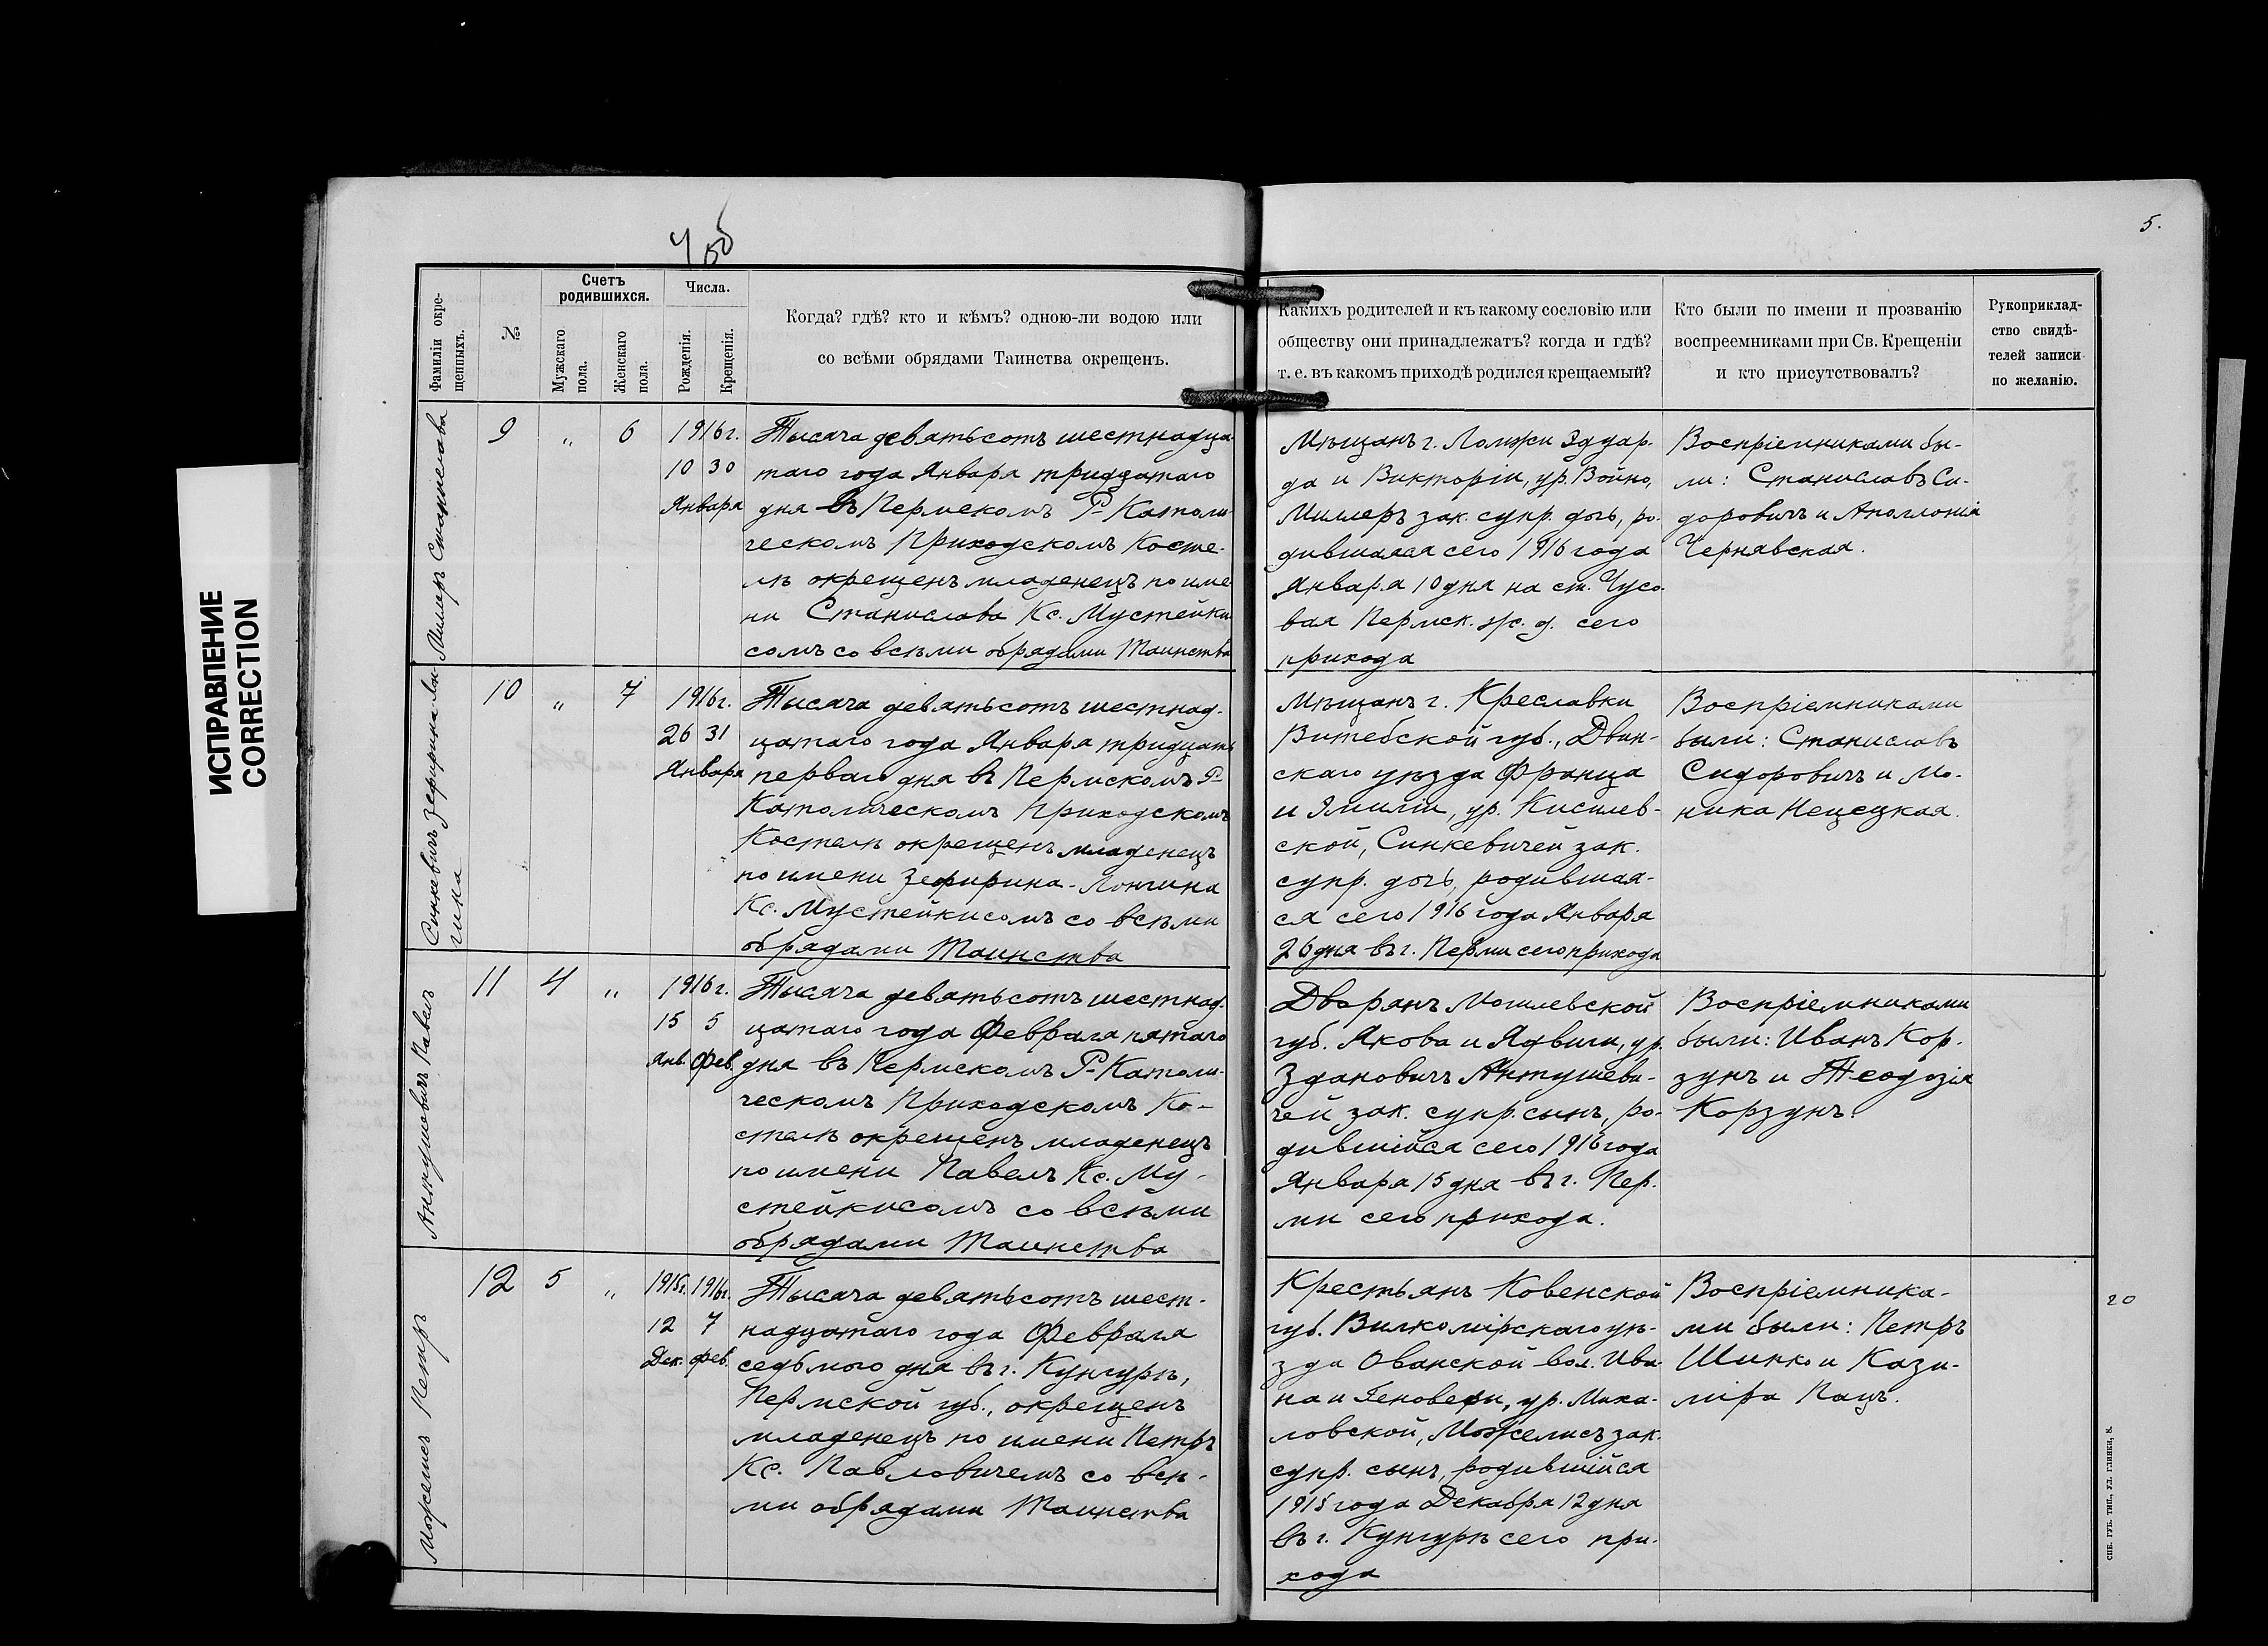 ИСПРАВЛЕНИЕ
CORRECTION
4 об
5.
Фамиліи окре-
щенныхъ.
№
Счетъ
родившихся.
Мужскаго
пола.
Женскаго
пола.
Числа.
Рожденія.
Крещенія.
Когда? гдѣ? кто и кѣмъ? одною-ли водою или
со всѣми обрядами Таинства окрещенъ.
Какихъ родителей и къ какому сословію или
обществу они принадлежатъ? когда и гдѣ?
т. е. въ какомъ приходѣ родился крещаемый?
Кто были по имени и прозванію
воспреемниками при Св. Крещеніи
и кто присутствовалъ?
Рукоприклад-
ство свидѣ-
телей записи
по желанію.
Миллеръ Станислава
9
"
6
1916 г.
10 30
Января
Тысяча девятьсотъ шестнадца-
таго года Января тридцатаго
дня въ Пермскомъ Р-Католи-
ческомъ Приходскомъ Косте-
лѣ окрещенъ младенецъ по име-
ни Станислава Кс. Мустейки-
сомъ со всѣми обрядами Таинства
Мѣщанъ г. Ломжи Эдуар-
да и Викторіи, ур. Войно,
Миллеръ зак. супр. дочь, ро-
дившаяся сего 1916 года
Января 10 дня на ст. Чусо-
вая Пермск. ж. д. сего
прихода
Воспріемниками бы-
ли: Станиславъ Си-
доровичъ и Аполлонія
Чернявская.
Синкевичъ Зефирина-Лон-
гина
10
"
7
1916 г.
26 31
Января
Тысяча девятьсотъ шестнад-
цатаго года Января тридцать
перваго дня въ Пермскомъ Р-
Католическомъ Приходскомъ
Костелѣ окрещенъ младенецъ
по имени Зефирина-Лонгина
Кс. Мустейкисомъ со всѣми
обрядами Таинства
Мѣщанъ г. Креславки
Витебской губ., Двин-
скаго уѣзда Франца
и Эмиліи, ур. Кисилев-
ской, Синкевичей зак.
супр. дочь, родившая-
ся сего 1916 года Января
26 дня въ г. Перми сего прихода
Воспріемниками
были: Станиславъ
Сидоровичъ и Мо-
ника Нецецкая.
Антушевичъ Павелъ
11
4
"
1916 г.
15 5
Янв. Фев.
Тысяча девятьсотъ шестнад-
цатаго года Февраля пятаго
дня въ Пермскомъ Р-Католи-
ческомъ Приходскомъ Ко-
стелѣ окрещенъ младенецъ
по имени Павелъ Кс. Му-
стейкисомъ со всѣми
обрядами Таинства
Дворянъ Могилевской
губ. Якова и Ядвиги, ур.
Здановичъ Антушеви-
чей зак. супр. сынъ, ро-
дившійся сего 1916 года
Января 15 дня въ г. Пер-
ми сего прихода.
Воспріемниками
были: Иванъ Кор-
зунъ и Теодозія
Корзунъ.
Можелисъ Петръ
12
5
"
1915г. 1916г.
12 7
Дек. фев.
Тысяча девятьсотъ шест-
надцатаго года Февраля
седьмого дня въ г. Кунгурѣ,
Пермской губ., окрещенъ
младенецъ по имени Петръ
Кс. Павловичемъ со всѣ-
ми обрядами Таинства
Крестьянъ Ковенской
губ. Вилкомірскаго уѣ-
зда Ованской вол. Ива-
на и Геновефи, ур. Миха-
ловской, Можелисъ зак.
супр. сынъ, родившійся
1915 года Декабря 12 дня
въ г. Кунгурѣ сего при-
хода
Воспріемника-
ми были: Петръ
Шинко и Кази-
міра Пацъ.
20
СПБ. ГУБ. ТИП., УЛ. ГЛИНКИ, 8.